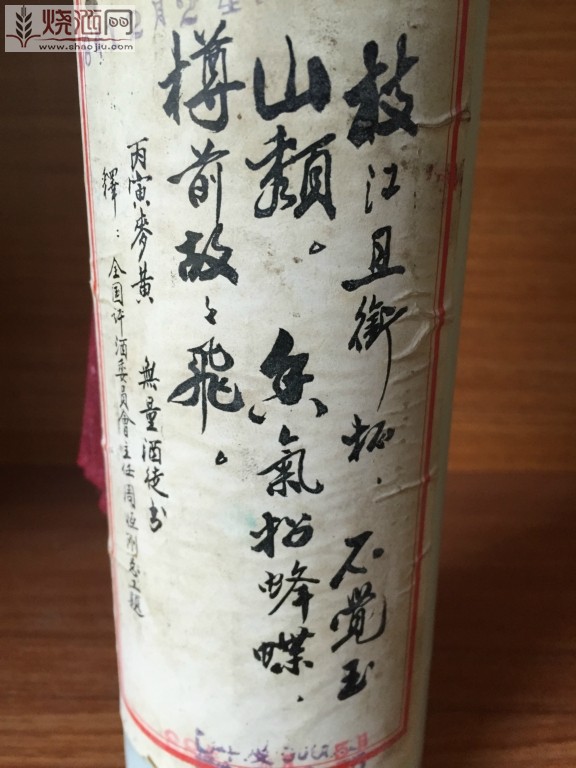 烧酒网
www.shaojiu.com
枝江且銜杯，不覺玉
山頹。香氣招蜂蝶，
樽前故々飛。
丙寅麥黄 無量酒徒书
釋：全国评酒委員會主任周恒刚